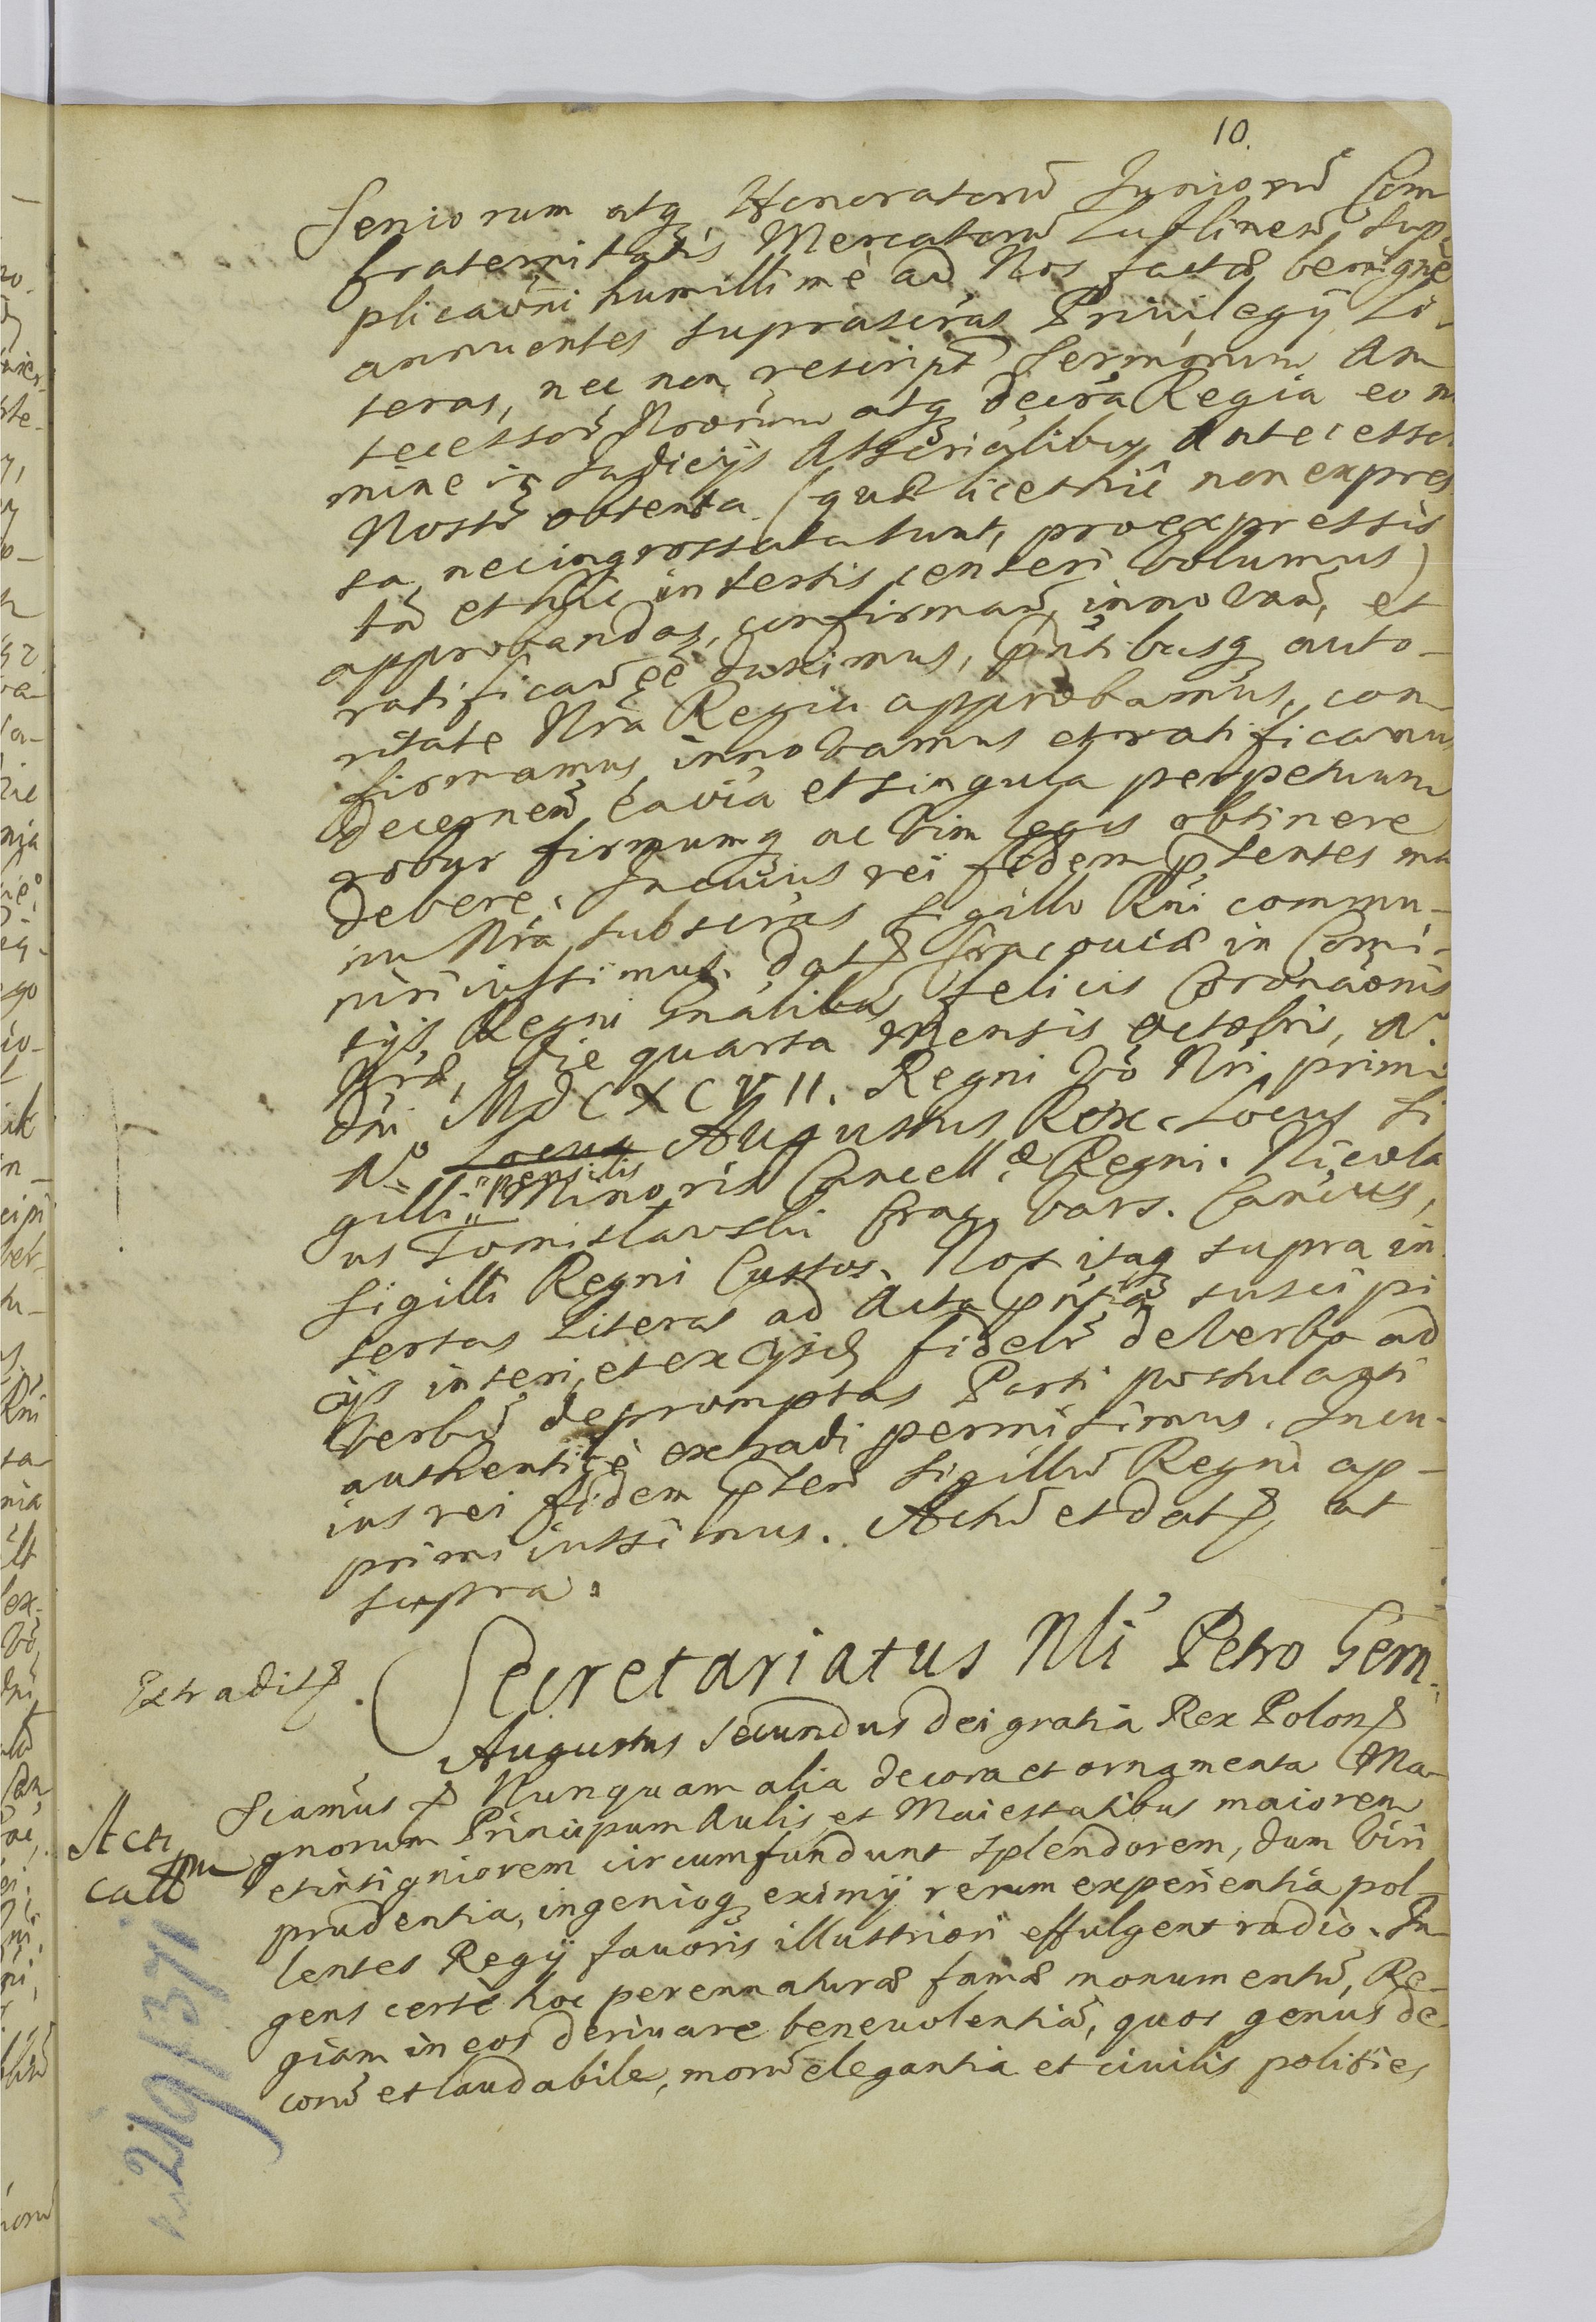 10.
Seniorum atq Honoratorũ Juniorũ Con
fraternitatis Mercatorũ Lublinen̄ Sup
plicaōni humillimè ad Nos factæ benignè
annuentes suprascr̃as Privilegÿ Li-
teras, nec non rescript Sermōrum An
tecessor̃ Nrorum atq decr̃a Regia eo no
mine in Judicÿs Assēssorialibus Antecesso
Nostr̃ obtenta (quæ licet hic non expres
sa, nec ingrossata sunt, pro expressis
tñ et hic insertis censeri volumus)
approbandas, confirman̄, innovan̄, et
ratifican̄ eē duximus, pñtibusq auto-
ritate Nrã Regia approbamus, con
firmamus, innovamus et ratificamus
decernen̄ ea oĩa et singula perpetuum
robur firmumq ac vim legis obtinere
debere. In cuius rei fidem pñtes ma
nu Nrã subscr̃as Sigillo Rñi commu-
niri iussimus. Dat Cracoviæ in Comi-
tÿs Regni Gñalibus felicis Coronaōnis
Nræ, die quarta Mensis Octobris, Aº
Dñi MDCXCVII. Regni võ Nri primo
Aº Locus Augustus Rex. Locus Si
gilli pensilis Minoris Cancellæ Regni. Nicola
us Tomisławski Crac. Vars. Canōcus,
Sigilli Regni Custos. Nos itaq supra in
sertas Literas ad Acta pñtia suscipi
ijs inseri, et ex ijsd fideliter de verbo ad
verbũ depromptas Parti postulanti
authenticè extradi permisimus. In cu-
ius rei fidem pñten̄ Sigillũ Regni ap-
primi iussimus. Actũ et dat ut
supra.
Extradit.
Secretariatus Nli Petro Gem.
Augustus Secundus Dei gratia Rex Polon
Actu
Call
Sciamus Nunquam alia decora et ornamenta Ma-
gnorum Principum Aulis et Maiestatibus maiorem
et insigniorem circumfundunt splendorem, dum viri
prudentia, ingenioq eximÿ rerum experientia pol-
lentes Regÿ favoris illustriori effulgent radio. In
gens certè hoc perennaturæ famæ monumentũ, Re-
giam in eos derivare benevolentiã, quos genus de-
corũ et laudabile, morũ elegantia et civilis polities
219/1371